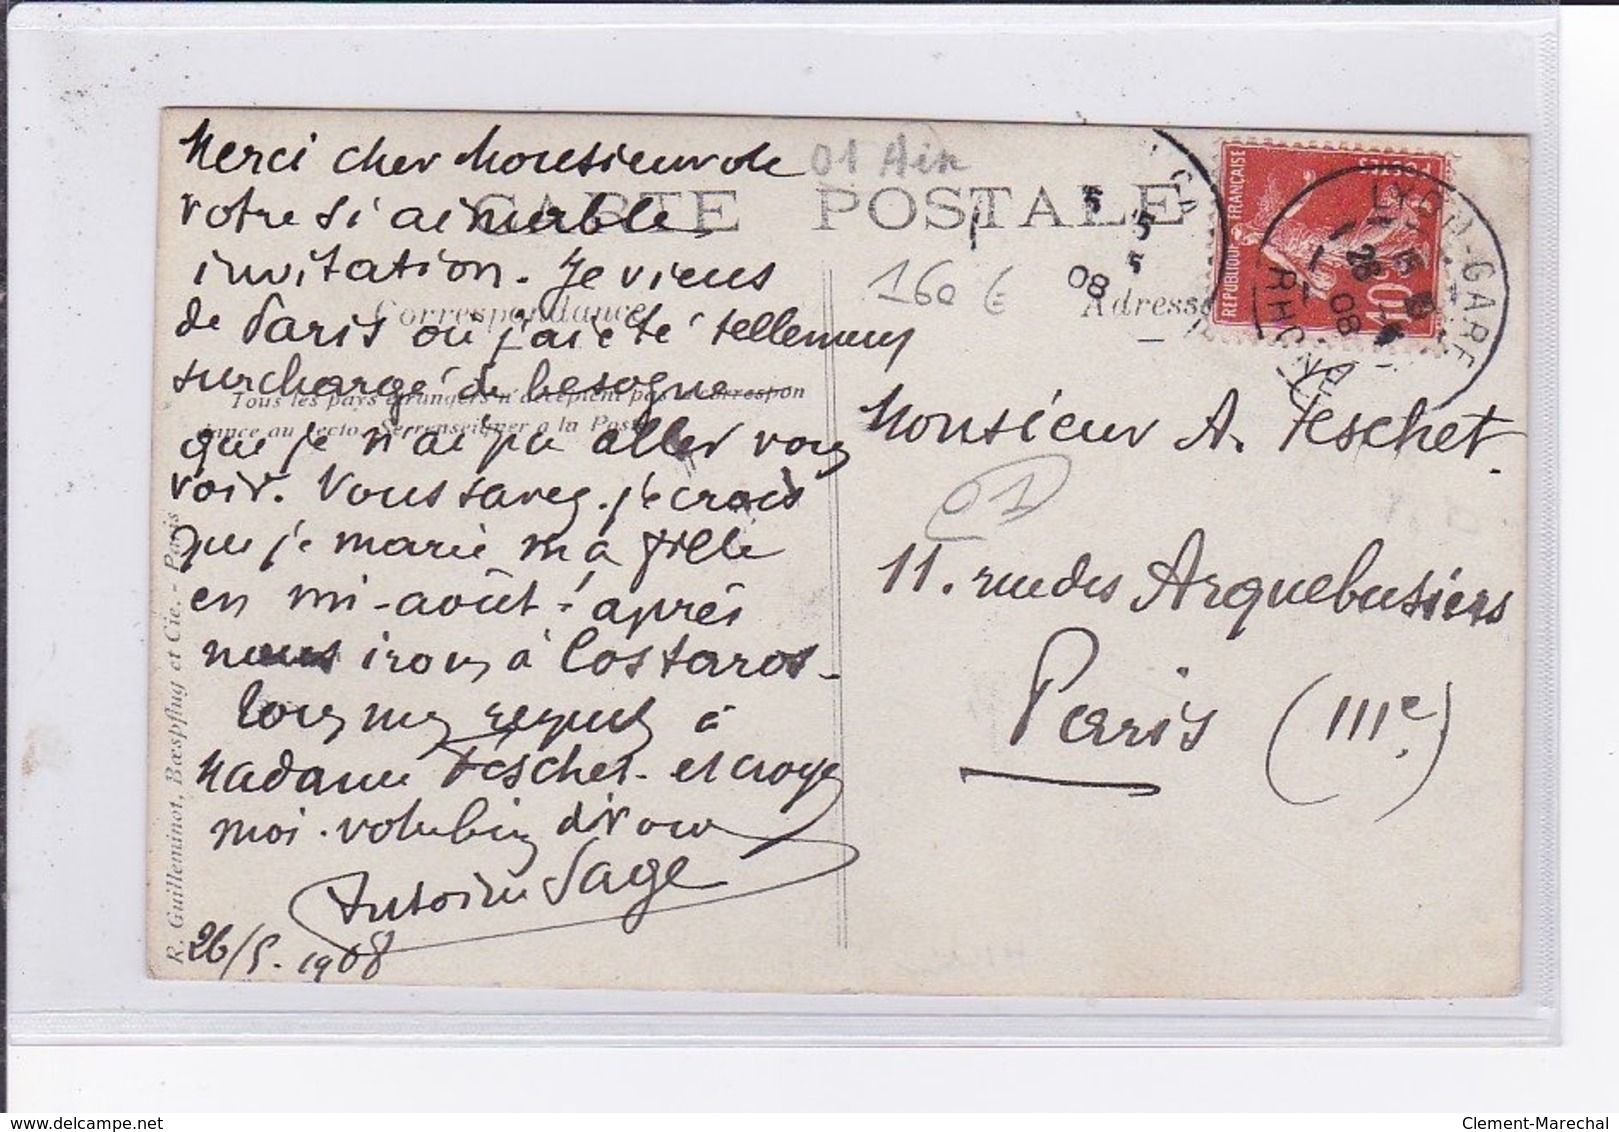 Merci cher Monsieur de
votre si aimable
invitation. Je viens
de Paris où j'ai été tellement
surchargé de besogne
que je n'ai pu aller vous
voir. Vous savez. je crois
que je marie ma fille
en mi-août! après
nous irons à Costaros.
Tous mes respects à
Madame Feschet. et croyez
moi. votre bien dévoué
Antoine Sage
26/5. 1908
CARTE POSTALE
Correspondance
Adresse
Tous les pays étrangers n'acceptent pas la correspon
dance au recto. Se renseigner à la Poste
R. Guilleminot, Bœspflug et Cie. - Paris
01 Ain
160 €
01
Monsieur A. Feschet.
11. rue des Arquebusiers
Paris (IIIe)
REPUBLIQUE FRANÇAISE
POSTES
10
LYON-GARE
RHONE
28
08
5 5
08
Clement-Marechal